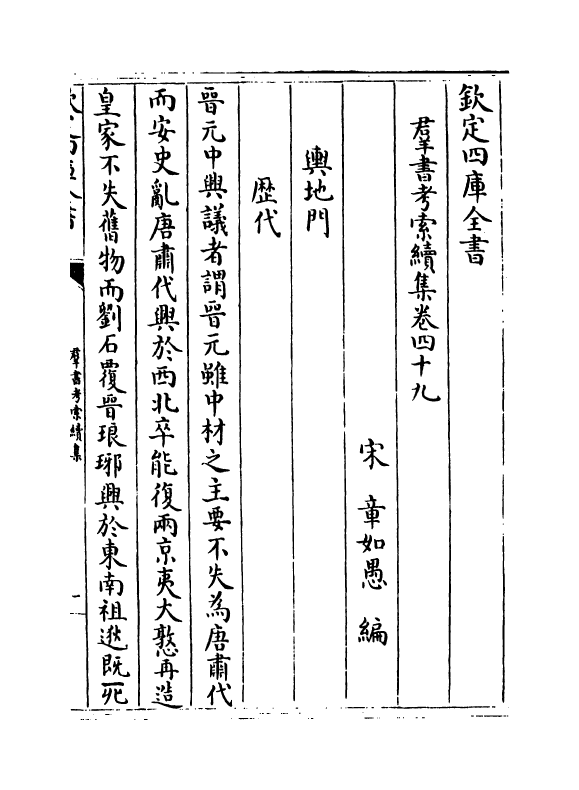 欽定四庫全書
羣書考索續集卷四十九
宋 章如愚 編
輿地門
歴代
晉元中興議者謂晉元雖中材之主要不失為唐肅代
而安史亂唐肅代興於西北卒能復兩京夷大憝再造
皇家不失舊物而劉石覆晉琅琊興於東南祖逖既死
羣書考索續集